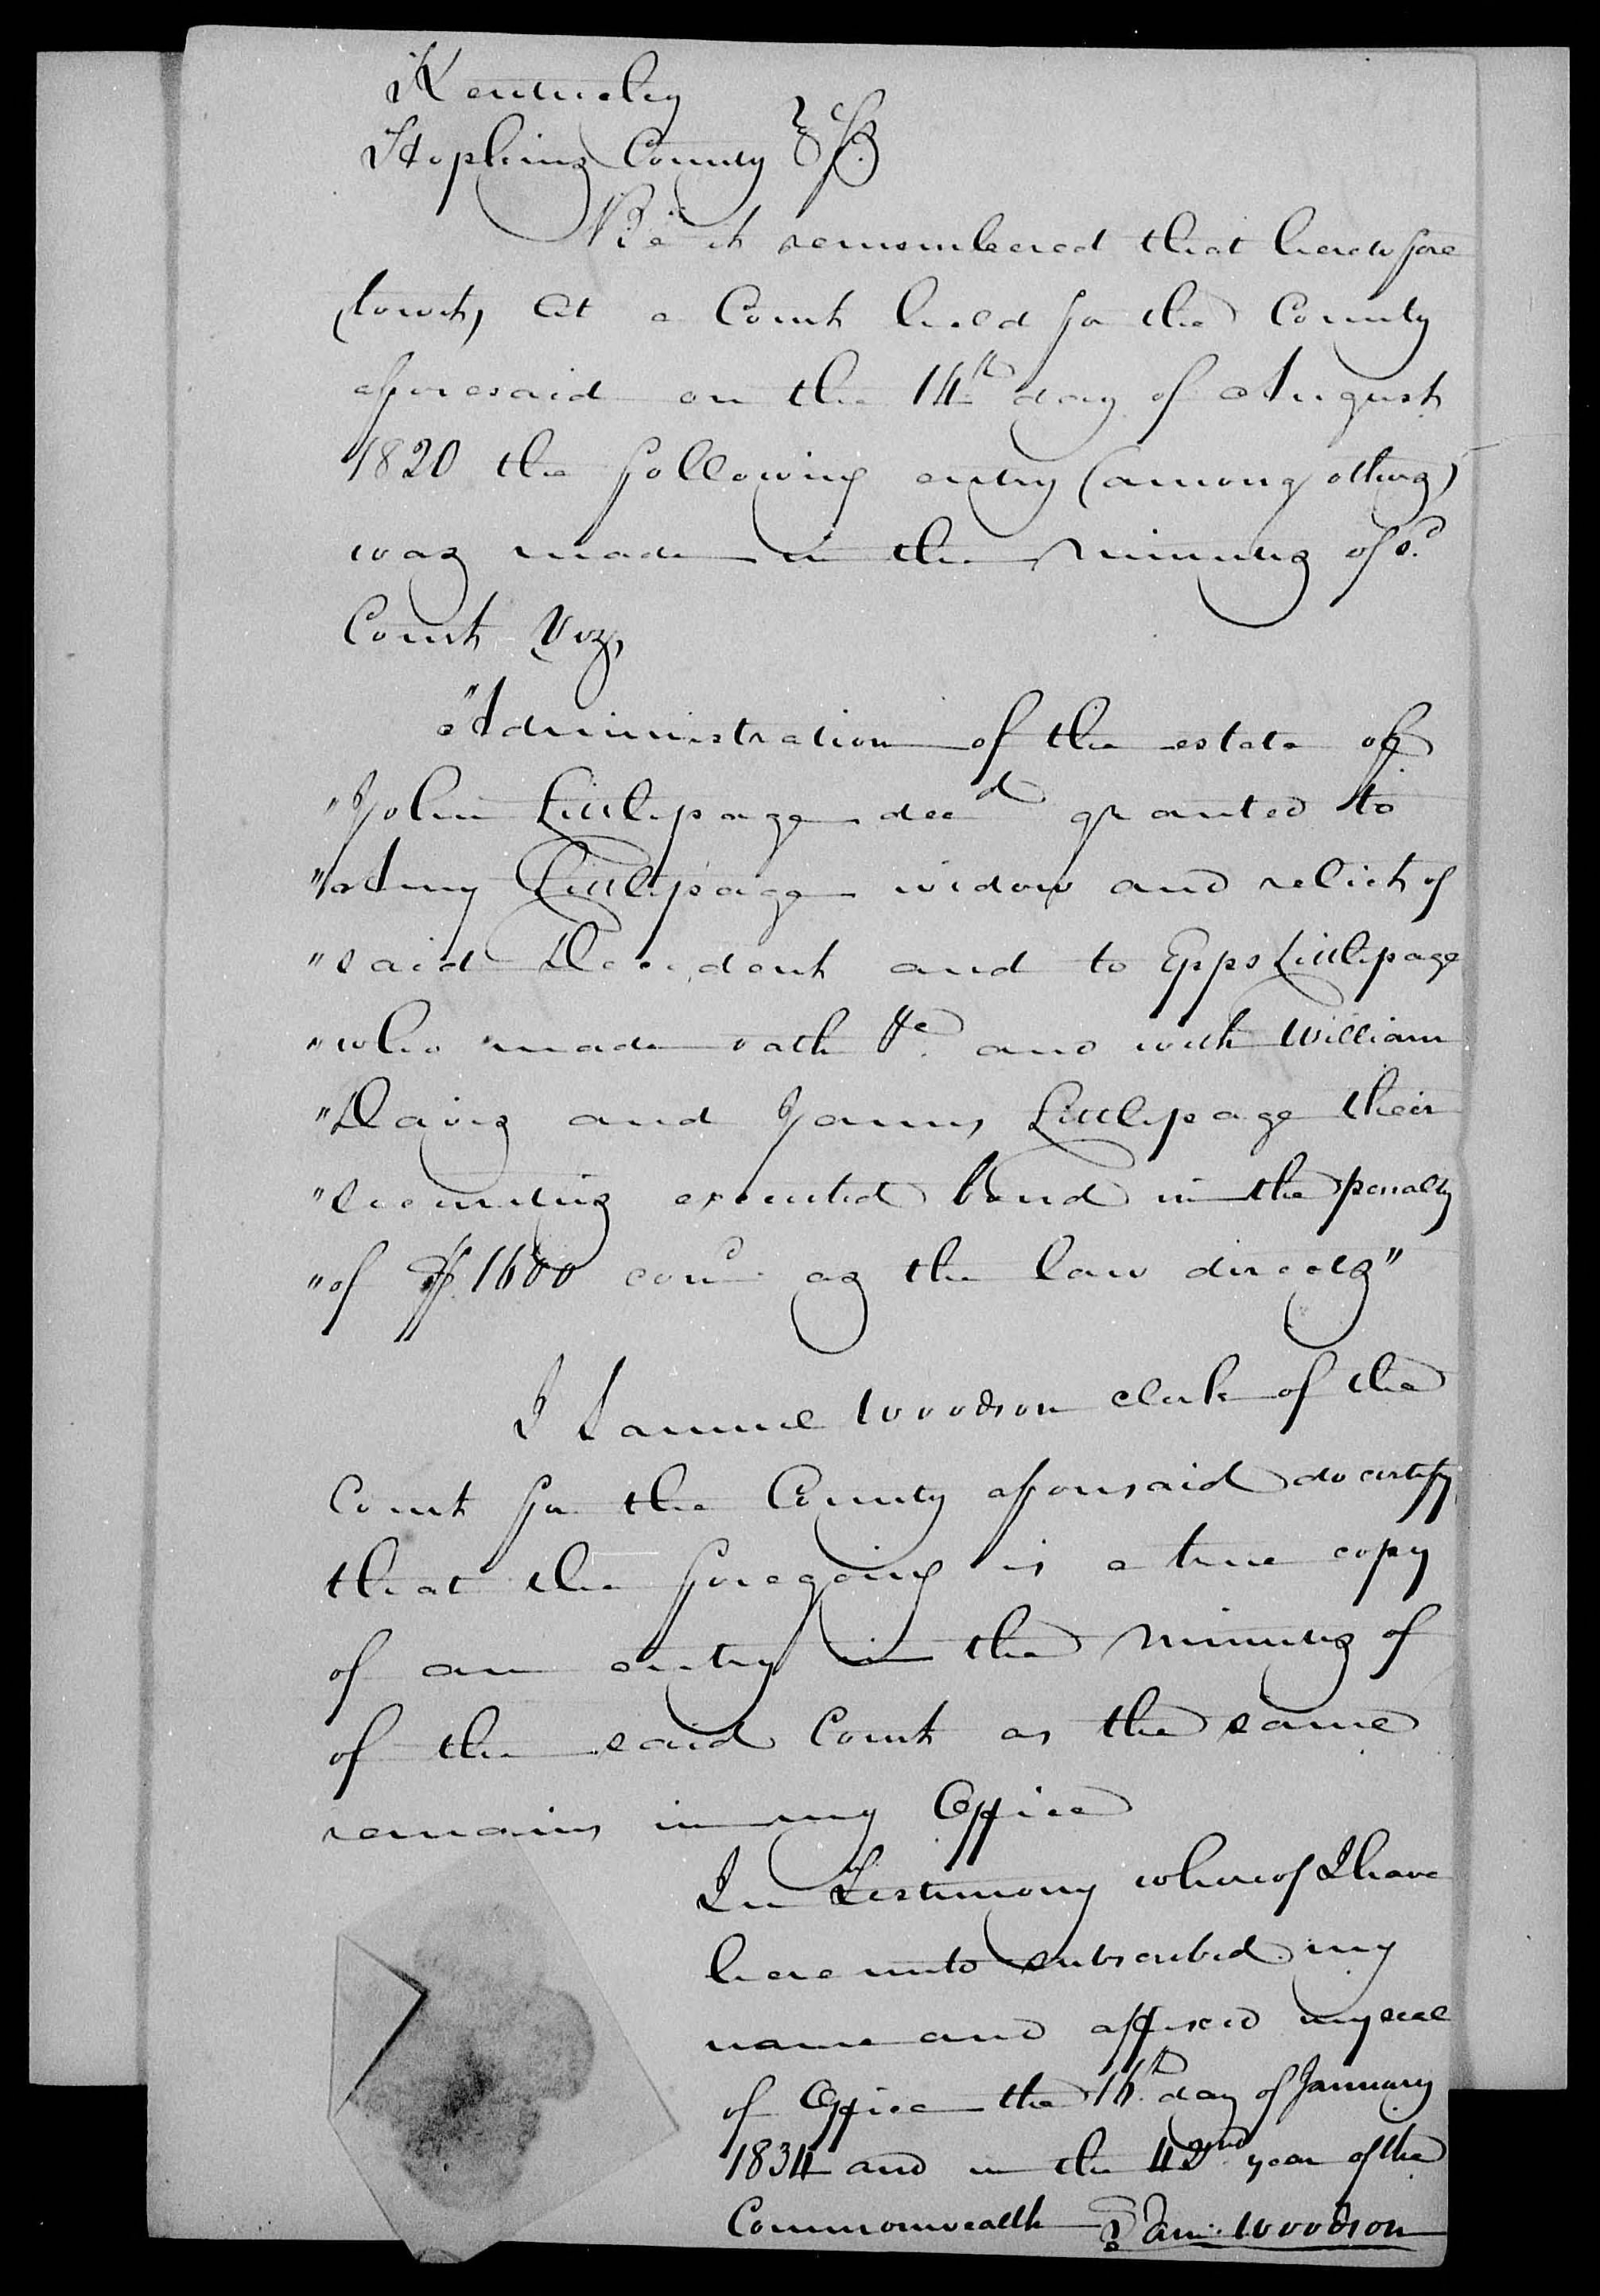 Kentucky
Hopkins County } Sct.
Be it remembered that heretofore
(towit) At a Court held for the County
aforesaid on the 14th day of August
1820 the following entry (among others)
was made in the minutes of sd.
Court Viz,
"Administration of the estate of
"John Littlepage decd granted to
"Amy Littlepage widow and relict of
"said Decedent and to Epps Littlepage
"who made oath &c. and with William
"Davis and James Littlepage their
"securities executed bond in the penalty
"of $1600 cond as the law directs"
I Samuel Woodson clerk of the
Court for the County aforesaid do certify
that the foregoing is a true copy
of an entry in the minutes of
of the said Court as the same
remains in my Office
In Testimony whereof I have
hereunto subscribed my
name and affixed my seal
of Office the 16th day of January
1834 and in the 42nd year of the
Commonwealth Sam. Woodson